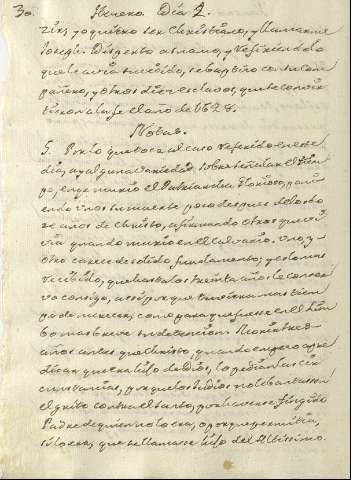 30. Henero Dia 2.
cirs, yo quiero ser Christiano, y llamarme
Joseph. Disperto a su amo, y refiriendole
que le avia sucedido, se baptizo con su com
pañero, y otros diez esclavos, que se convir
tieron a la fe el año de 1628.
Notas.
5. Por lo que toca al caso referido en este
dia, ay alguna variedad sobre señalar el tiem
po, en que murio el Patriarcha glorioso, pani
endo unos su muerte poco despues de los do
ce años de Christo, afirmando otros que vi
via quando murio en el Calvario. Uno, y
otro carece de solido fundamento; y es lo mas
recibido, que hasta los treinta años lo conser
vo consigo, assi porque tuviera mas tiem
po de merecer, como para que fuesse en el Lim
bo mas breve su detencion. Ni aun tres
años antes que Christo, quando empezo a pre
dicar que era hijo de Dios, lo pedian las cir
cunstancias, porque los Judios no levantassen
el grito contra el Santo, por haverse fingido
Padre de quien no lo era, o porque permitia,
si lo era, que se llamasse hijo del Altissimo.